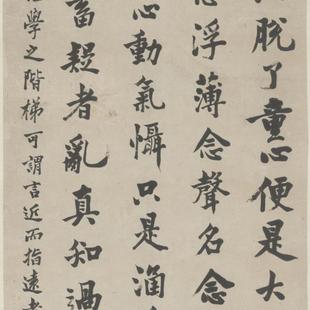 脫了童心便是大
浮薄念聲名念
心動氣懾只是涵
畜疑者亂真知過
學之階梯可謂言近而指遠者